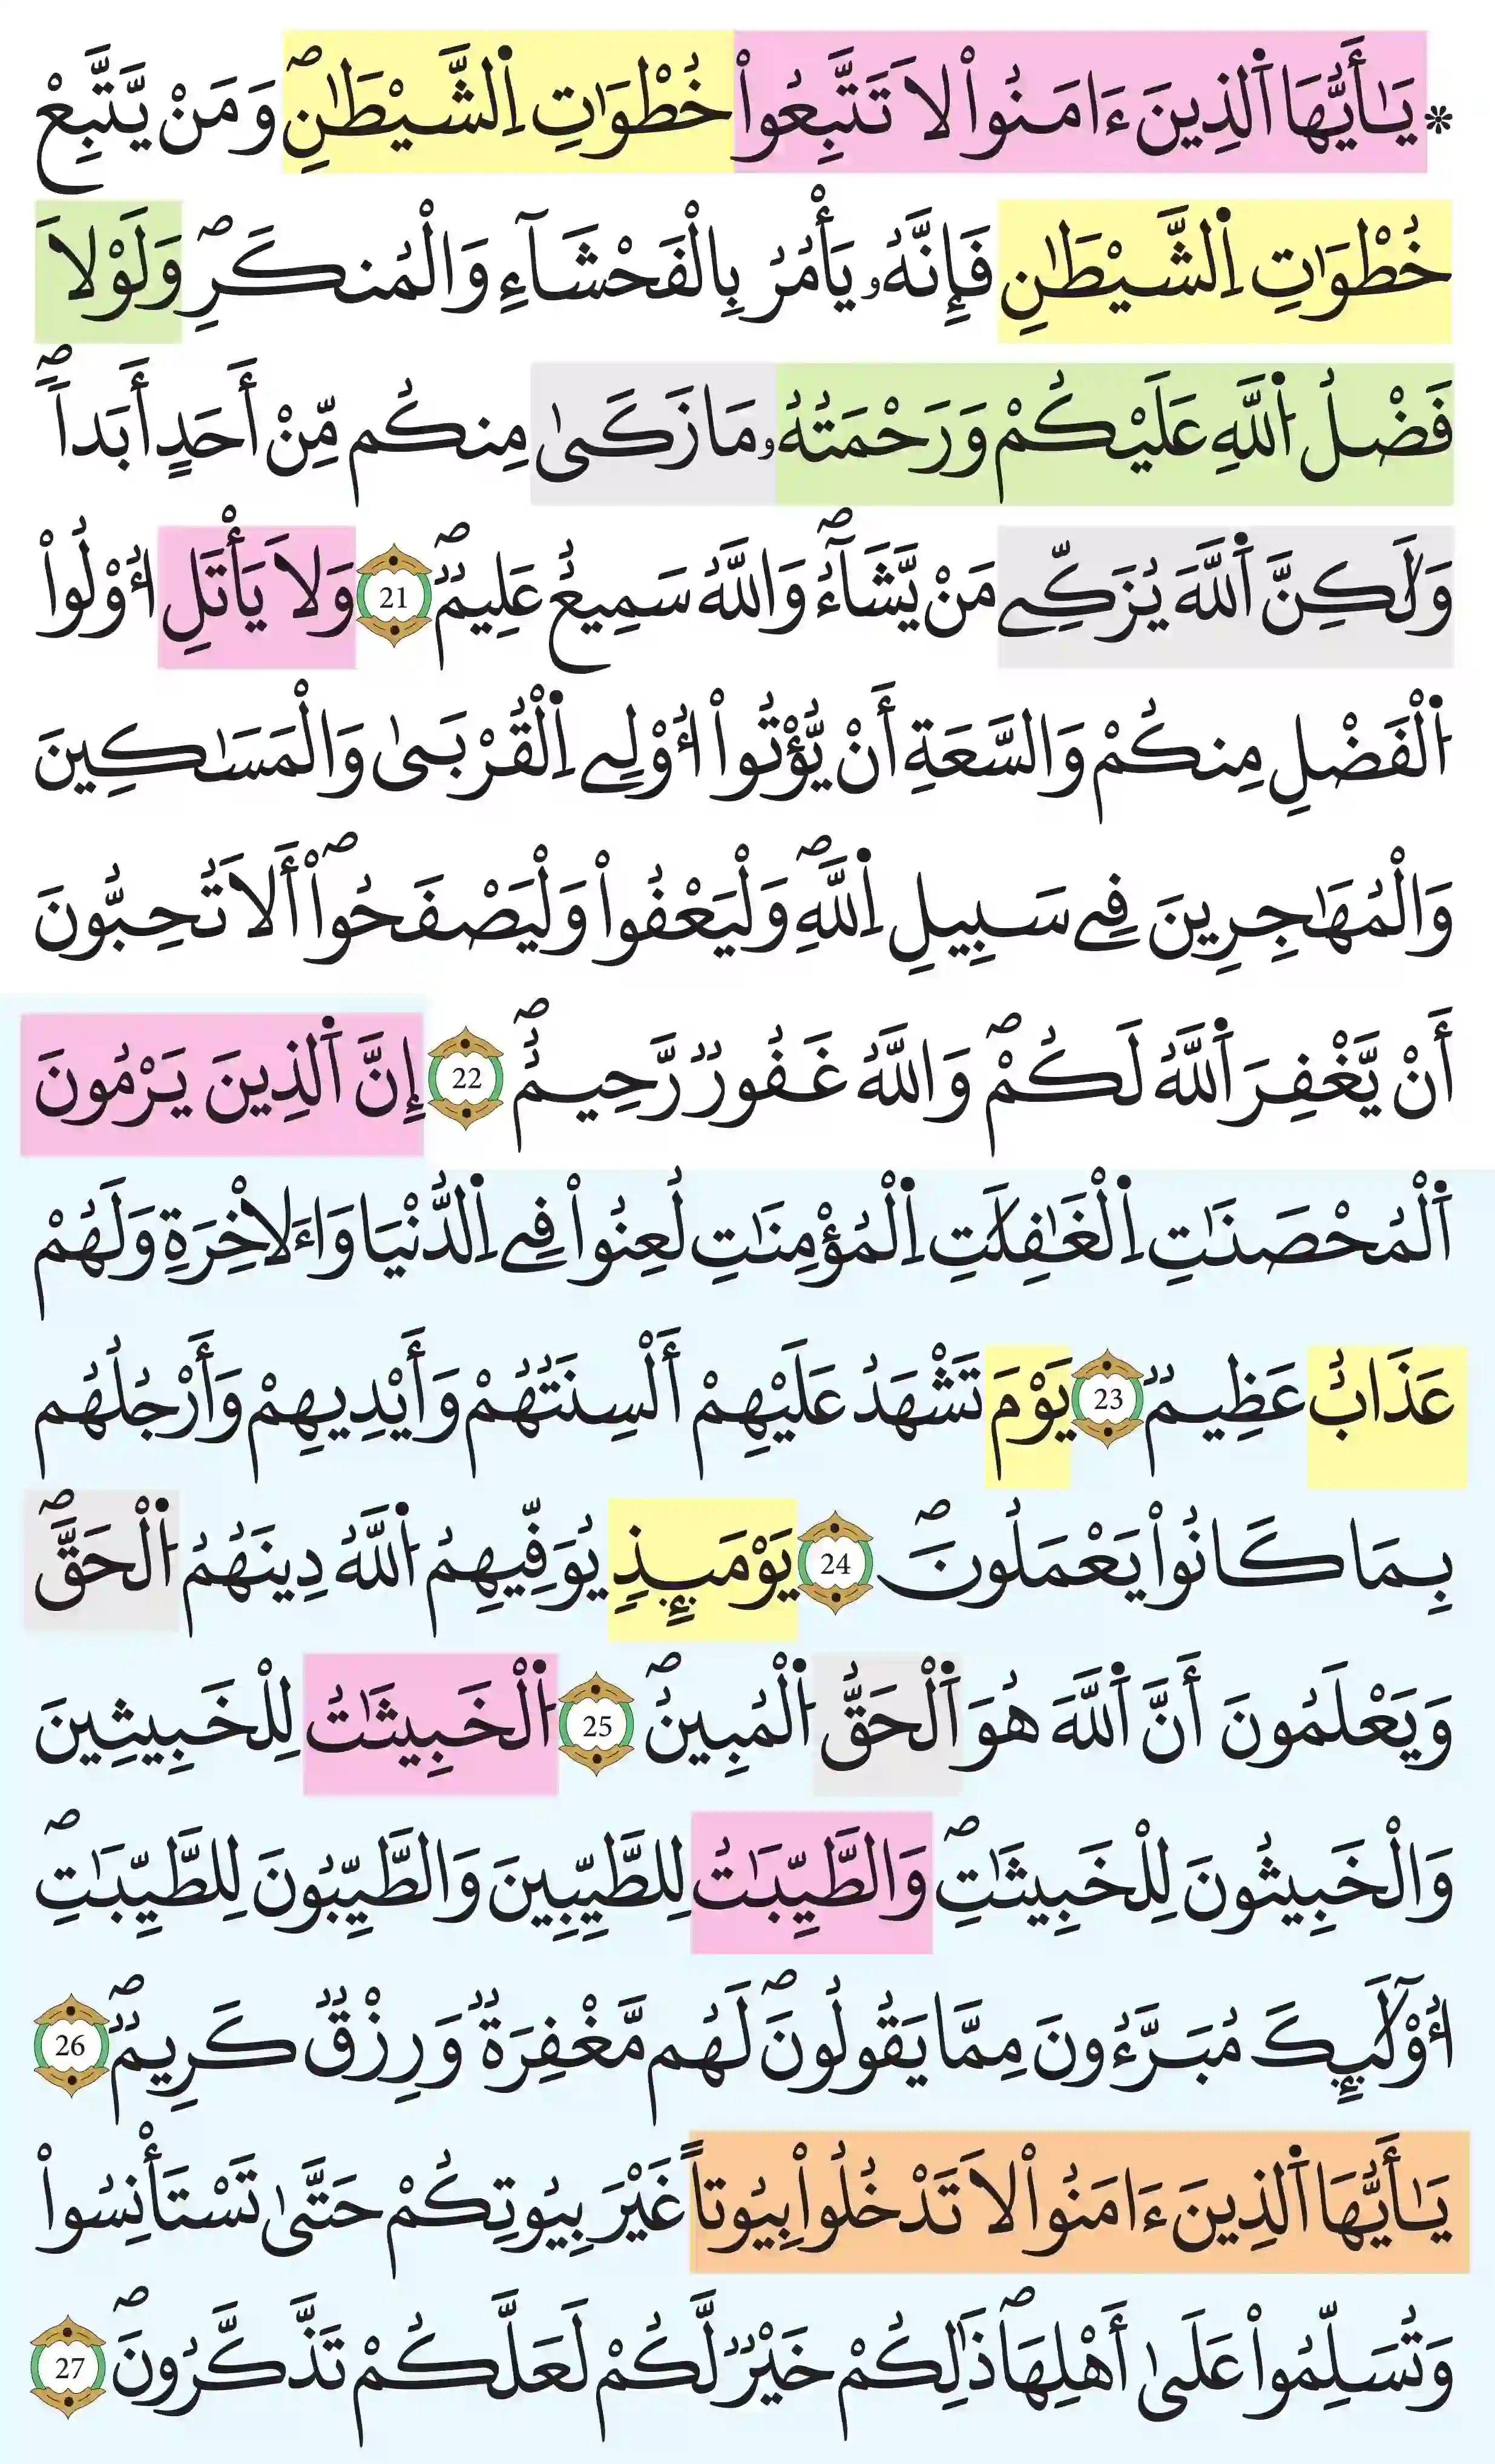 * يَٰأَيُّهَا اَ۬لذِينَ ءَامَنُواْ لَا تَتَّبِعُواْ خُطْوَٰتِ اِ۬لشَّيْطَٰنِۖ وَمَنْ يَّتَّبِعْ
خُطْوَٰتِ اِ۬لشَّيْطَٰنِ فَإِنَّهُۥ يَأْمُرُ بِالْفَحْشَآءِ وَالْمُنكَرِۖ وَلَوْلَا
فَضْلُ اُ۬للَّهِ عَلَيْكُمْ وَرَحْمَتُهُۥ مَا زَكَىٰ مِنكُم مِّنْ أَحَدٍ أَبَداٗۖ
وَلَٰكِنَّ اَ۬للَّهَ يُزَكِّے مَنْ يَّشَآءُۖ وَاللَّهُ سَمِيعٌ عَلِيمٞۖ 21 وَلَا يَأْتَلِ أُوْلُواْ
اُ۬لْفَضْلِ مِنكُمْ وَالسَّعَةِ أَنْ يُّؤْتُواْ أُوْلِے اِ۬لْقُرْبَىٰ وَالْمَسَٰكِينَ
وَالْمُهَٰجِرِينَ فِے سَبِيلِ اِ۬للَّهِۖ وَلْيَعْفُواْ وَلْيَصْفَحُواْۖ أَلَا تُحِبُّونَ
أَنْ يَّغْفِرَ اَ۬للَّهُ لَكُمْۖ وَاللَّهُ غَفُورٞ رَّحِيمٌۖ 22 إِنَّ اَ۬لذِينَ يَرْمُونَ
اَ۬لْمُحْصَنَٰتِ اِ۬لْغَٰفِلَٰتِ اِ۬لْمُؤْمِنَٰتِ لُعِنُواْ فِے اِ۬لدُّنْيَا وَاءَلَاخِرَةِ وَلَهُمْ
عَذَابٌ عَظِيمٞ 23 يَوْمَ تَشْهَدُ عَلَيْهِمْ أَلْسِنَتُهُمْ وَأَيْدِيهِمْ وَأَرْجُلُهُم
بِمَا كَانُواْ يَعْمَلُونَۖ 24 يَوْمَئِذٖ يُوَفِّيهِمُ اُ۬للَّهُ دِينَهُمُ اُ۬لْحَقَّۖ
وَيَعْلَمُونَ أَنَّ اَ۬للَّهَ هُوَ اَ۬لْحَقُّ اُ۬لْمُبِينُۖ 25 اُ۬لْخَبِيثَٰتُ لِلْخَبِيثِينَ
وَالْخَبِيثُونَ لِلْخَبِيثَٰتِۖ وَالطَّيِّبَٰتُ لِلطَّيِّبِينَ وَالطَّيِّبُونَ لِلطَّيِّبَٰتِۖ
أُوْلَٰٓئِكَ مُبَرَّءُونَ مِمَّا يَقُولُونَۖ لَهُم مَّغْفِرَةٞ وَرِزْقٞ كَرِيمٞۖ 26
يَٰأَيُّهَا اَ۬لذِينَ ءَامَنُواْ لَا تَدْخُلُواْ بِيُوتاً غَيْرَ بِيُوتِكُمْ حَتَّىٰ تَسْتَأْنِسُواْ
وَتُسَلِّمُواْ عَلَىٰ أَهْلِهَاۖ ذَٰلِكُمْ خَيْرٞ لَّكُمْ لَعَلَّكُمْ تَذَّكَّرُونَۖ 27